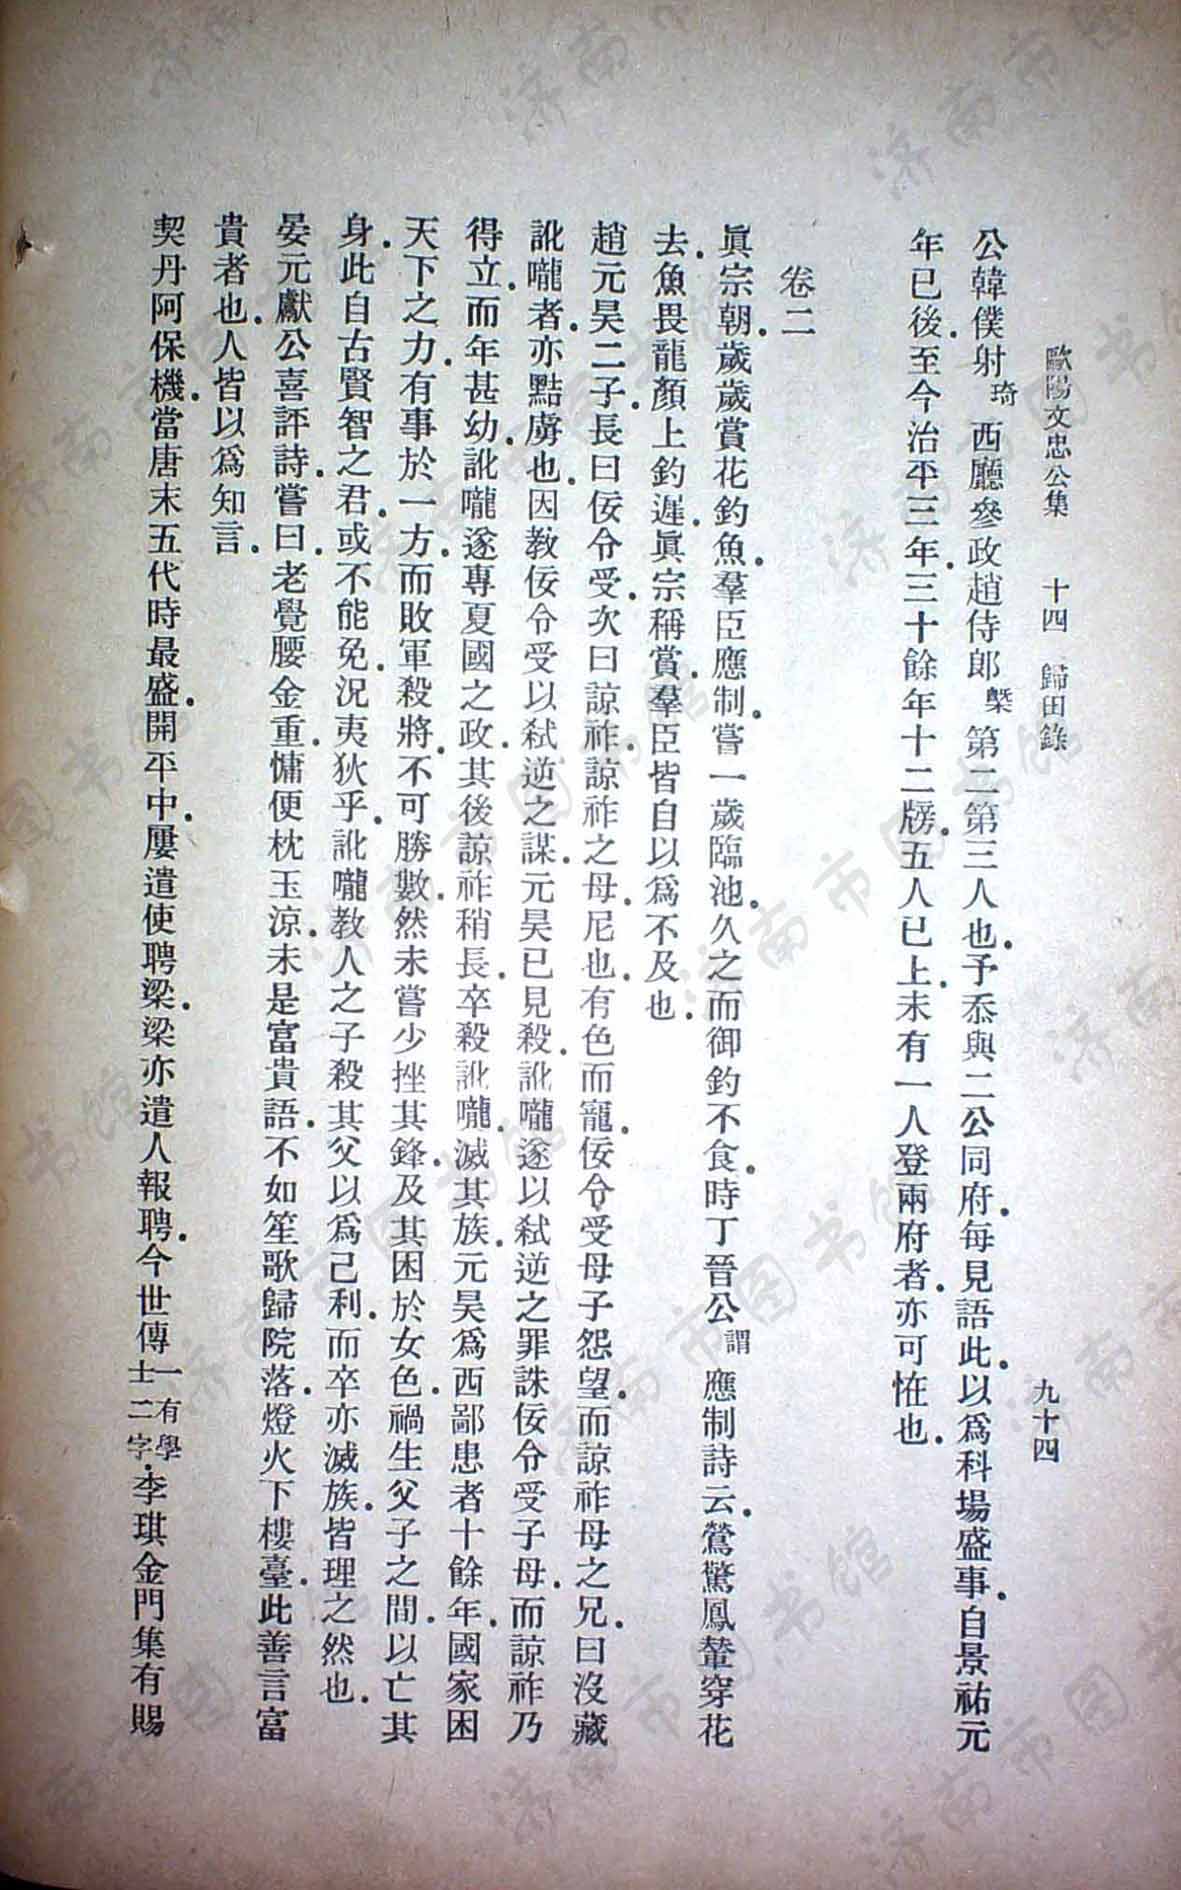 歐陽文忠公集　十四　歸田錄　九十四
公韓僕射琦西廳參政趙侍郎槩第二第三人也.予忝與二公同府.每見語此.以爲科場盛事.自景祐元
年已後.至今治平三年.三十餘年十二牓.五人已上.未有一人登兩府者.亦可恠也.
卷二
眞宗朝.歲歲賞花釣魚.羣臣應制.嘗一歲臨池.久之而御釣不食.時丁晉公謂應制詩云.鶯驚鳳輦穿花
去.魚畏龍顏上釣遲.眞宗稱賞.羣臣皆自以爲不及也.
趙元昊二子.長曰佞令受.次曰諒祚.諒祚之母.尼也.有色而寵.佞令受母子怨望.而諒祚母之兄.曰沒藏
訛嚨者.亦黠虜也.因教佞令受以弑逆之謀.元昊已見殺.訛嚨遂以弑逆之罪誅佞令受子母.而諒祚乃
得立.而年甚幼.訛嚨遂專夏國之政.其後諒祚稍長.卒殺訛嚨.滅其族.元昊爲西鄙患者十餘年.國家困
天下之力.有事於一方.而敗軍殺將.不可勝數.然未嘗少挫其鋒.及其困於女色.禍生父子之間.以亡其
身.此自古賢智之君.或不能免.況夷狄乎.訛嚨教人之子殺其父以爲己利.而卒亦滅族.皆理之然也.
晏元獻公喜評詩.嘗曰.老覺腰金重.慵便枕玉涼.未是富貴語.不如笙歌歸院落.燈火下樓臺.此善言富
貴者也.人皆以爲知言.
契丹阿保機.當唐末五代時最盛.開平中.屢遣使聘梁.梁亦遣人報聘.今世傳一有學士二字.李琪金門集有賜